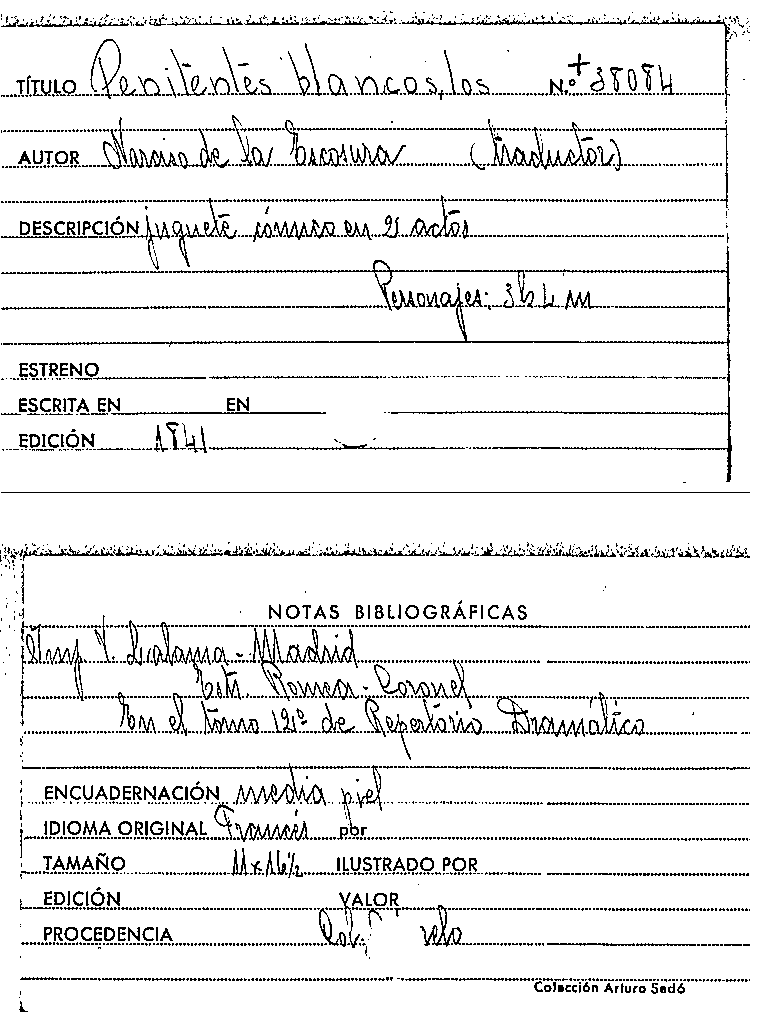 TÍTULO Penitentes blancos, los N.º + 38084
AUTOR Narciso de la Escosura (traductor)
DESCRIPCIÓN juguete cómico en 2 actos
Personajes: 3h 4 m
ESTRENO
ESCRITA EN EN
EDICIÓN 1841
NOTAS BIBLIOGRÁFICAS
Imp V. Lalama - Madrid
Edit. Romea - Coronel
En el tomo 12º de Repertorio Dramático
ENCUADERNACIÓN media piel
IDIOMA ORIGINAL Francés por
TAMAÑO 11 x 16½ ILUSTRADO POR
EDICIÓN VALOR
PROCEDENCIA
Colección Arturo Sedó